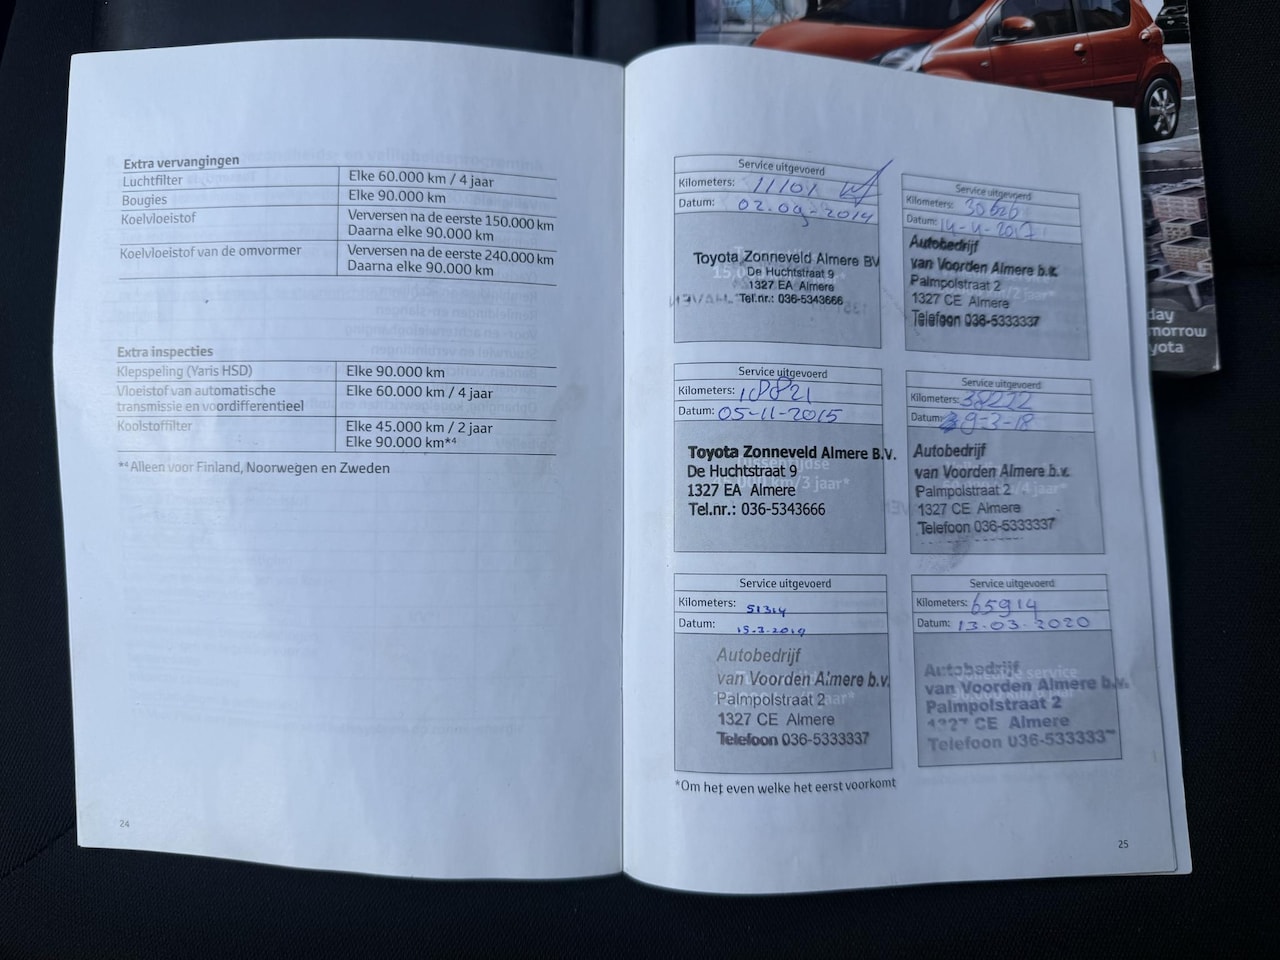 Extra vervangingen
Luchtfilter Elke 60.000 km / 4 jaar
Bougies Elke 90.000 km
Koelvloeistof Verversen na de eerste 150.000 km
Daarna elke 90.000 km
Koelvloeistof van de omvormer Verversen na de eerste 240.000 km
Daarna elke 90.000 km
Extra inspecties
Klepspeling (Yaris HSD) Elke 90.000 km
Vloeistof van automatische Elke 60.000 km / 4 jaar
transmissie en voordifferentieel
Koolstoffilter Elke 45.000 km / 2 jaar
Elke 90.000 km*4
*4 Alleen voor Finland, Noorwegen en Zweden
24
Service uitgevoerd
Kilometers: 11101
Datum: 02-09-2014
Toyota Zonneveld Almere BV
De Huchtstraat 9
1327 EA Almere
Tel.nr.: 036-5343666
Service uitgevoerd
Kilometers: 30626
Datum: 14-4-2017
Autobedrijf
van Voorden Almere b.v.
Palmpolstraat 2
1327 CE Almere
Telefoon 036-5333337
Service uitgevoerd
Kilometers: 18821
Datum: 05-11-2015
Toyota Zonneveld Almere B.V.
De Huchtstraat 9
1327 EA Almere
Tel.nr.: 036-5343666
Service uitgevoerd
Kilometers: 38222
Datum: 9-3-18
Autobedrijf
van Voorden Almere b.v.
Palmpolstraat 2
1327 CE Almere
Telefoon 036-5333337
Service uitgevoerd
Kilometers: 51314
Datum: 15-3-2019
Autobedrijf
van Voorden Almere b.v.
Palmpolstraat 2
1327 CE Almere
Telefoon 036-5333337
Service uitgevoerd
Kilometers: 65914
Datum: 13-03-2020
Autobedrijf
van Voorden Almere b.v.
Palmpolstraat 2
1327 CE Almere
Telefoon 036-533333
*Om het even welke het eerst voorkomt
25
day
morrow
yota